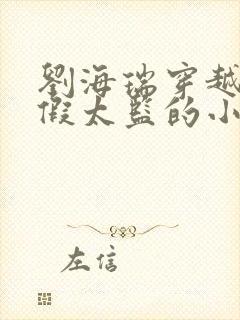 劉海瑞穿越
假太監的小
左信